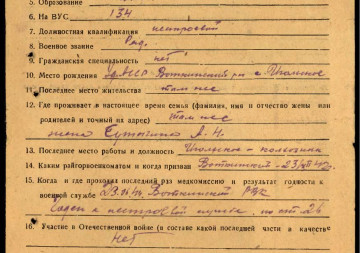 5. Образование
6. На ВУС 134
7. Должностная квалификация нестроевой
8. Военное звание Ряд.
9. Гражданская специальность нет
10. Место рождения Уд.АССР Воткинский рн с.
11. Последнее место жительства там же
12. Где проживает в настоящее время семья (фамилия, имя и отчество жены или
родителей и точный их адрес) Там же
жена А. Н.
13. Последнее место работы и должность колхозник
14. Каким райгорвоенкоматом и когда призван Воткинский
15. Когда и где проходил последний раз медкомиссию и результат годности к
военной службе Воткинский РВК
Годен к нестроевой службе, по ст
16. Участие в Отечественной войне (в составе какой последней части и в качестве
Нет